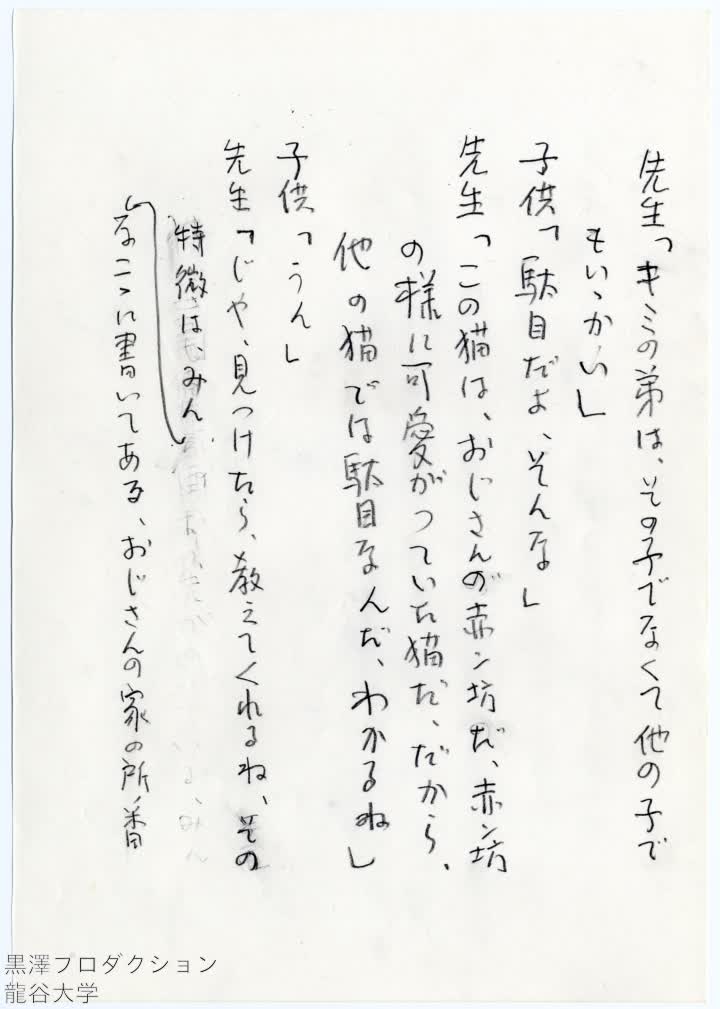 先生「キミの弟は、その子でなくて他の子で
もいゝかい」
子供「駄目だよ、そんな」
先生「この猫は、おじさんの赤ン坊だ、赤ン坊
の様に可愛がつていた猫だ、だから、
他の猫では駄目なんだ、わかるね」
子供「うん」
先生「じや、見つけたら、教えてくれるね、その
特徴は、みん
なこゝに書いてある、おじさんの家の所番
黒澤プロダクション
龍谷大学